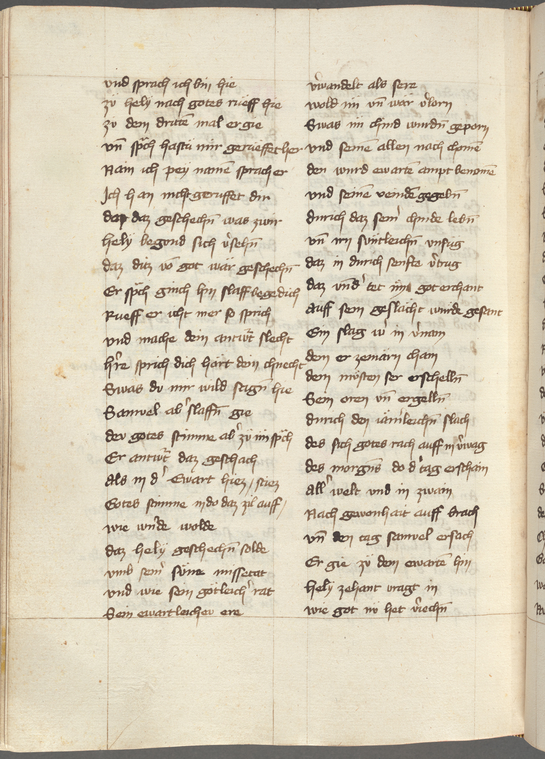 vnd sprach ich bin hie
zv hely nach gotes rueff hie
zv dem dritten mal er gie
vn̄ sp̄ch hastu mir gerueffet her
Nain ich pey namen sprach er
Ich han nicht geruffet dir
daz geschechn̄ was zwir
hely begond sich v̓sehn̄
daz ditz vō got wär geschechn̄
Er sp̄ch ginch hin slaff begedich
Rueff er icht mer so sprich
vnd mache dein antwurt slecht
h̓re sprich dich hört dein chnecht
Swas dv mir wild sagn̄ hie
Samuel ab̓ slaffn̄ gie
der gotes stimme ab̓ zv im sp̄ch
Er antwurt daz geschach
als in d̓ Ewart hiez
Gotes stimme in do daz
wie wolde
daz hely geschechn̄ solde
vmb sein̓ süne missetat
vnd wie sein götleich̓ rat
Sein ewartleicher ere
v̓wandelt als sere
wold im vn̄ wär v̓lorn
Swas im chind wurdn̄ geporn
vnd seine allen nach chomē
den wurd ewarte ampt benomē
vnd seinē veinde gegebn̄
durich daz sein̓ chinde lebn̄
vn̄ irn suntleichn̄ vnfug
daz in durich senfte v̓trug
daz vnd̓ tet im got erchant
Auff sein geslächt wurde gesant
Ein slag in
dem er
dem müsten ser erschelln̄
Sein oren vn̄ ergelln̄
durich den iämleichn̄ slach
des sich gotes rach auff in v̓wag
des morgn̄s do d̓ tag erschain
all̓ welt vnd in zwain
Nach gewonhait auff prach
vn̄ den tag samuel ersach
Er gie zv dem ewarte hin
hely zehant vragt in
wie got im het v̓iechn̄